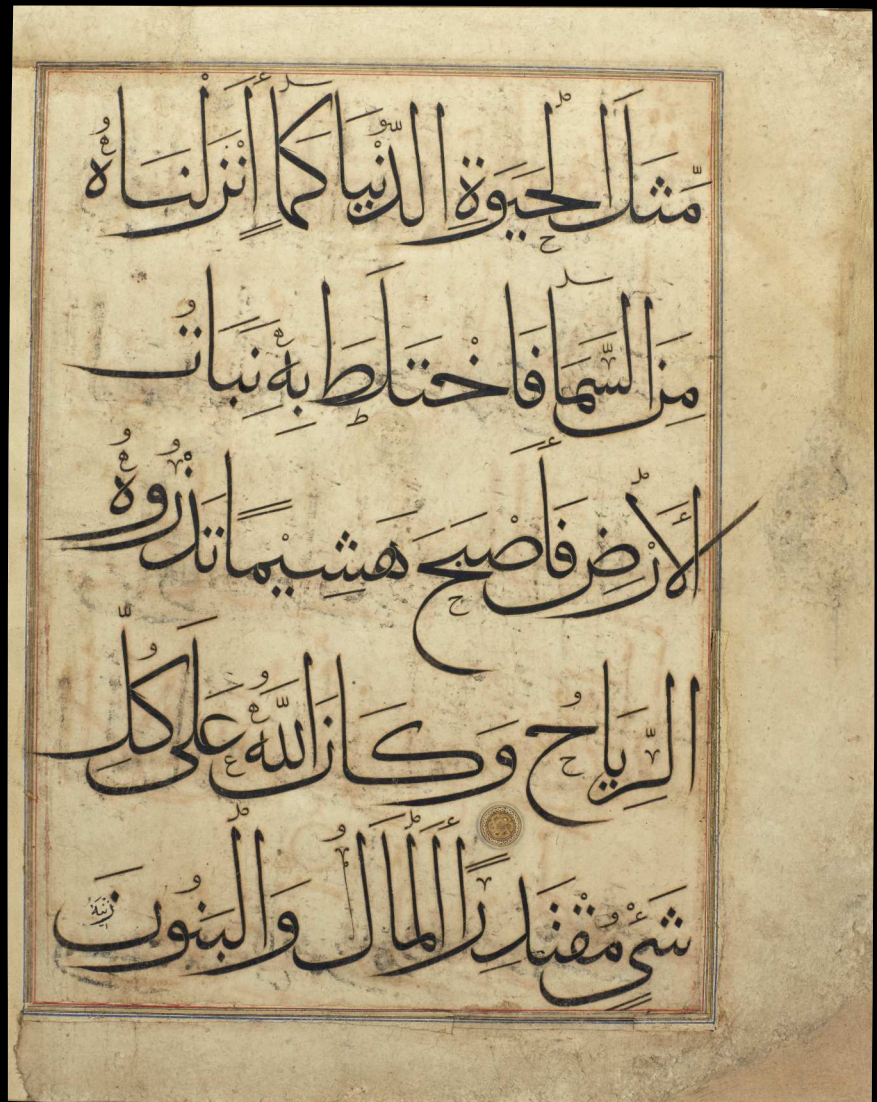 مَّثَلَ الْحَيَوةِ الدُّنْيَا كَمَاءٍ أَنْزَلْنَاهُ
مِنَ السَّمَا فَاخْتَلَطَ بِهِ نَبَاتُ
الْأَرْضِ فَأَصْبَحَ هَشِيْمًا تَذْرُوهُ
الرِّيَاحُ وَكَانَ اللَّهُ عَلَى كُلِّ
شَيْءٍ مُقْتَدِرًا أَلْمَالُ وَالْبَنُونَ زِيْنَةُ